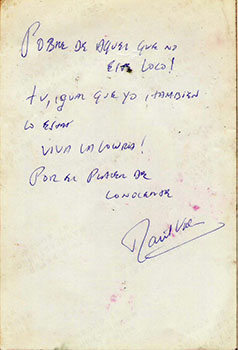 POBRE DE AQUEL QUE NO
ESTE LOCO!
TU, IGUAL QUE YO, TAMBIEN
LO ESTAS
VIVA LA LOCURA!
POR EL PLACER DE
CONOCERTE
Raúl